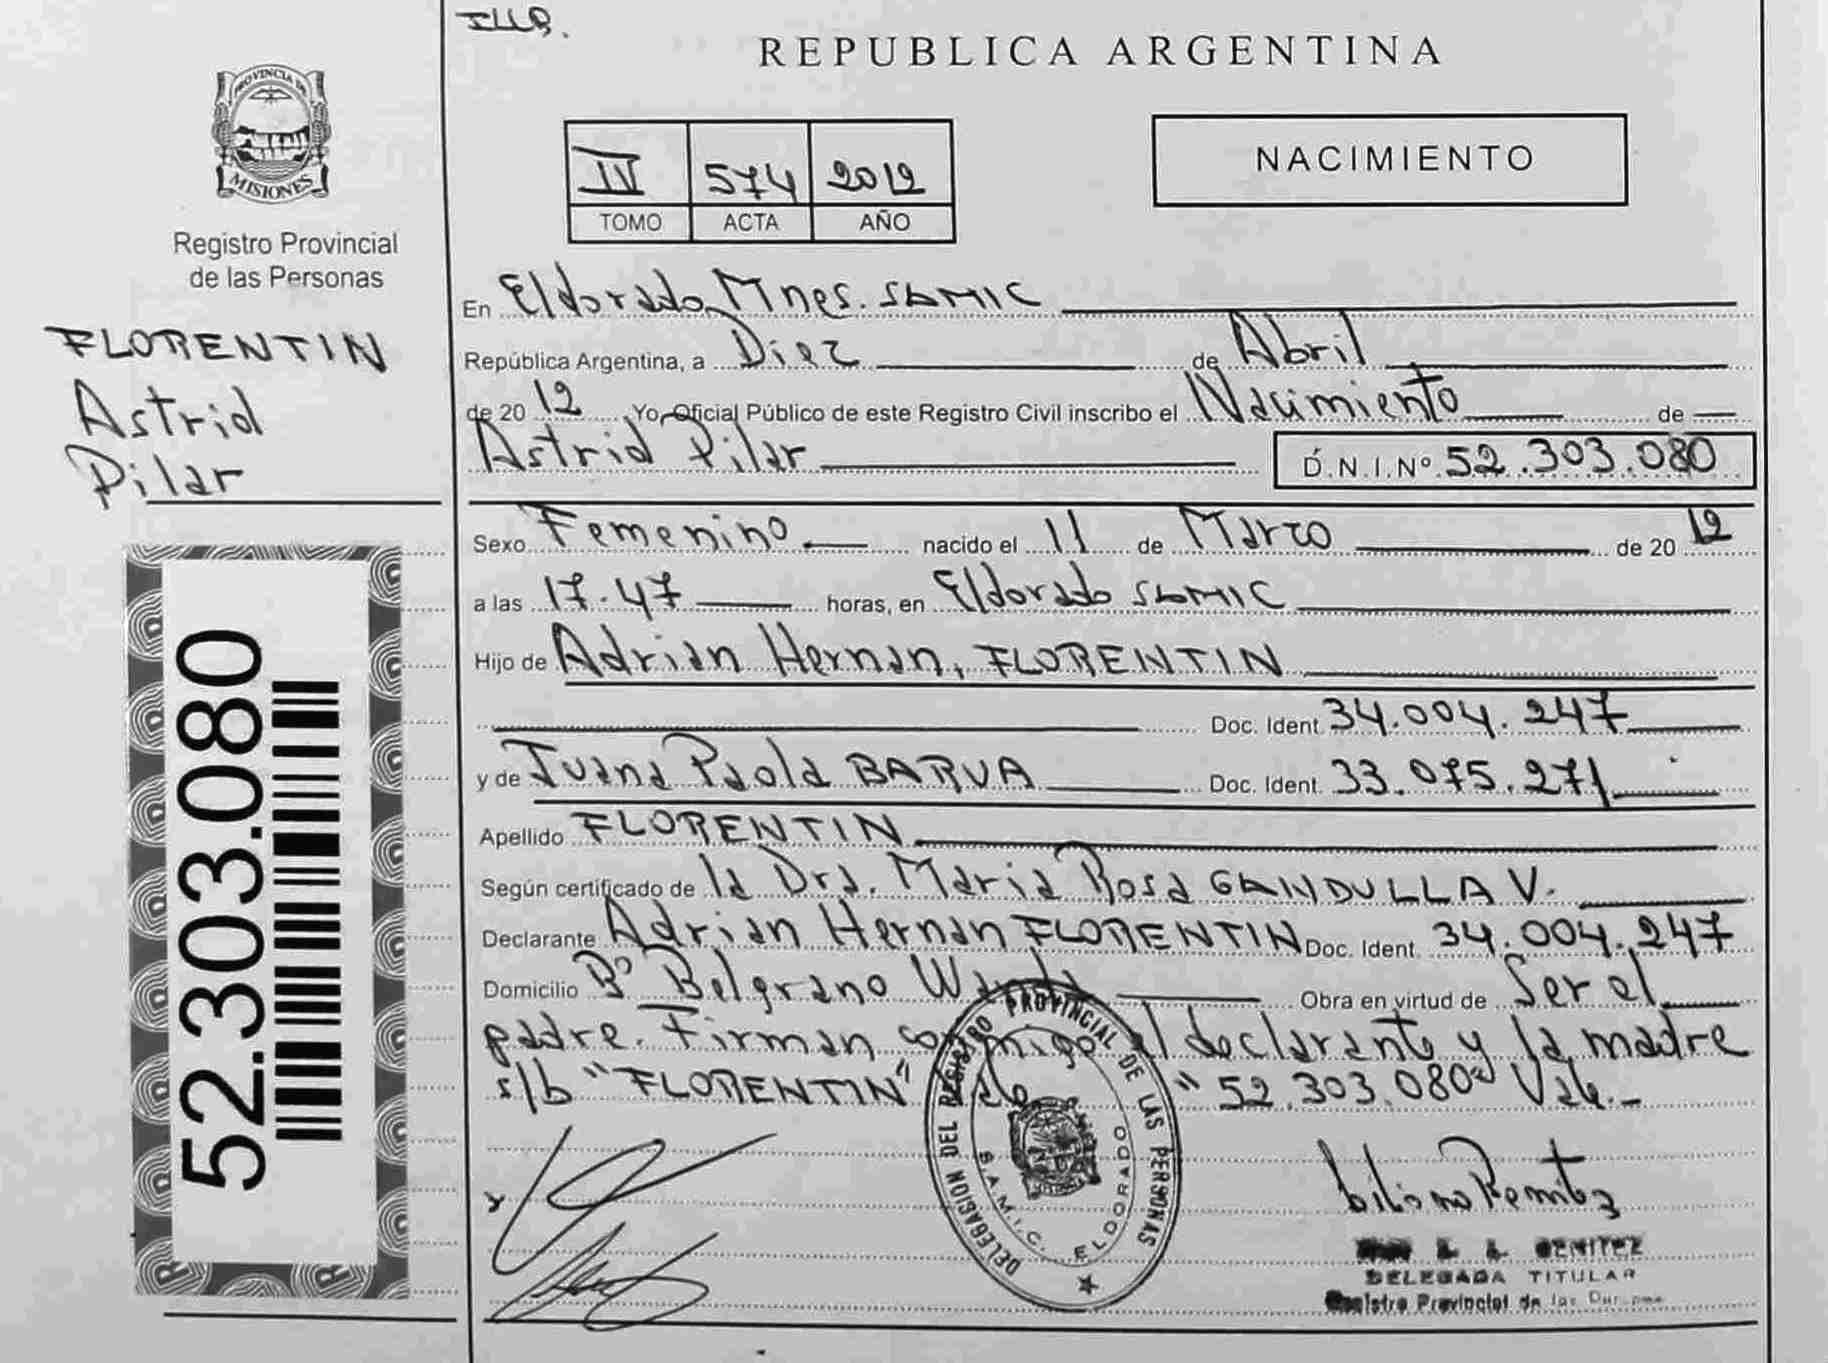 ILLB.
REPUBLICA ARGENTINA
PROVINCIA DE
MISIONES
Registro Provincial
de las Personas
IV 574 2012
TOMO ACTA AÑO
NACIMIENTO
FLORENTIN
Astrid
Pilar
52.303.080
En Eldorado Mnes. SAMIC
República Argentina, a Diez de Abril
de 20 12 Yo, Oficial Público de este Registro Civil inscribo el Nacimiento de
Astrid Pilar D.N.I.Nº 52.303.080
Sexo Femenino nacido el 11 de Marzo de 20 12
a las 17.47 horas, en Eldorado SAMIC
Hijo de Adrian Hernan, FLORENTIN
Doc. Ident. 34.004.247
y de Juana Paola BARUA Doc. Ident. 33.075.271
Apellido FLORENTIN
Según certificado de la Dra. Maria Rosa GANDULLA V.
Declarante Adrian Hernan FLORENTIN Doc. Ident. 34.004.247
Domicilio Bº Belgrano Wanda Obra en virtud de Ser el
padre. Firman conmigo el declarante y la madre
s/b "FLORENTIN" Vale "52.303.080" Vale.-
DELEGACION DEL REGISTRO PROVINCIAL DE LAS PERSONAS
S.A.M.I.C. ELDORADO
BENITEZ
DELEGADA TITULAR
Registro Provincial de las Personas